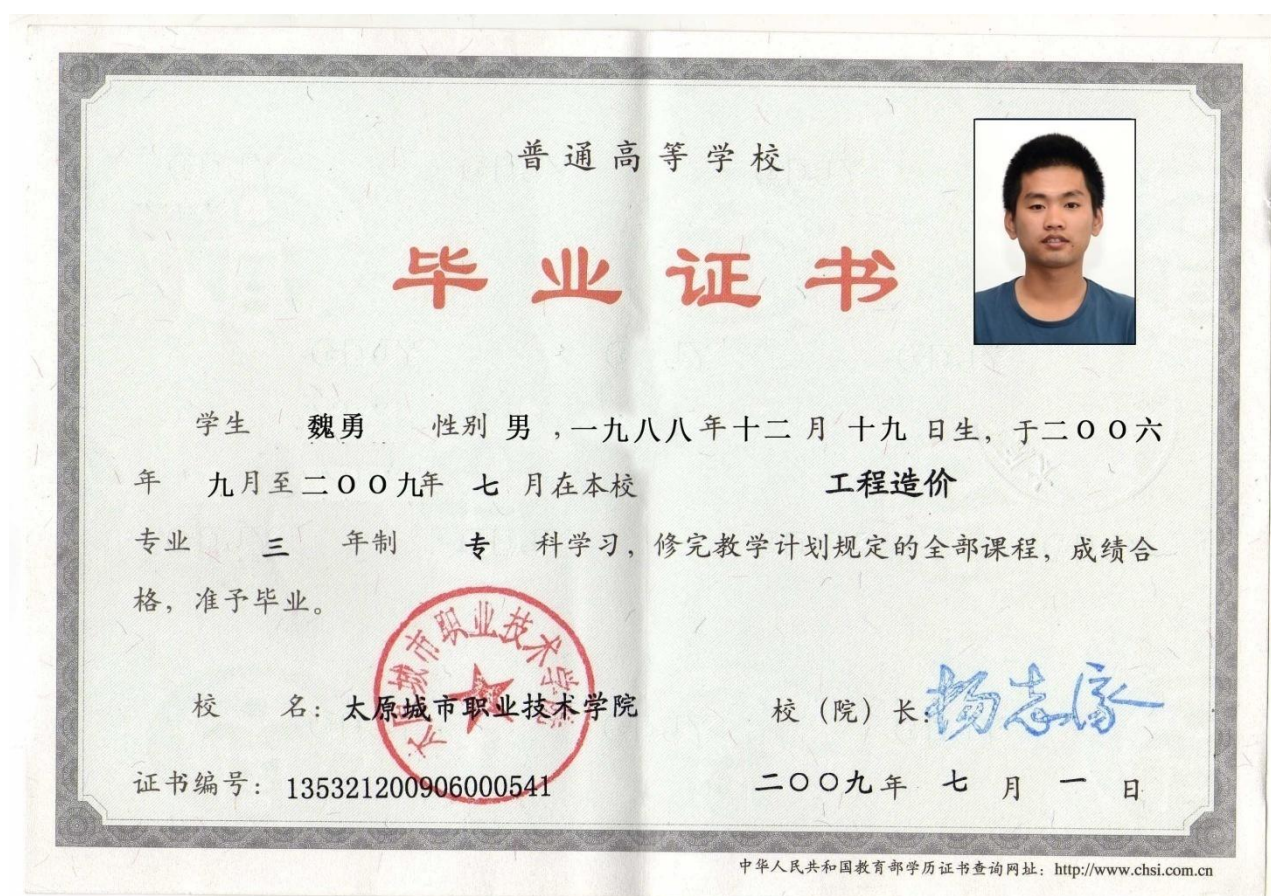 普通高等学校
毕业证书
学生 魏勇 性别 男 ,一九八八年十二月十九日生，于二〇〇六
年 九月至二〇〇九年 七月在本校 工程造价
专业 三 年制 专 科学习，修完教学计划规定的全部课程，成绩合
格，准予毕业。
太原城市职业技术学院
校 名：太原城市职业技术学院 校（院）长：
证书编号：135321200906000541 二〇〇九年 七月 一日
中华人民共和国教育部学历证书查询网址：http://www.chsi.com.cn